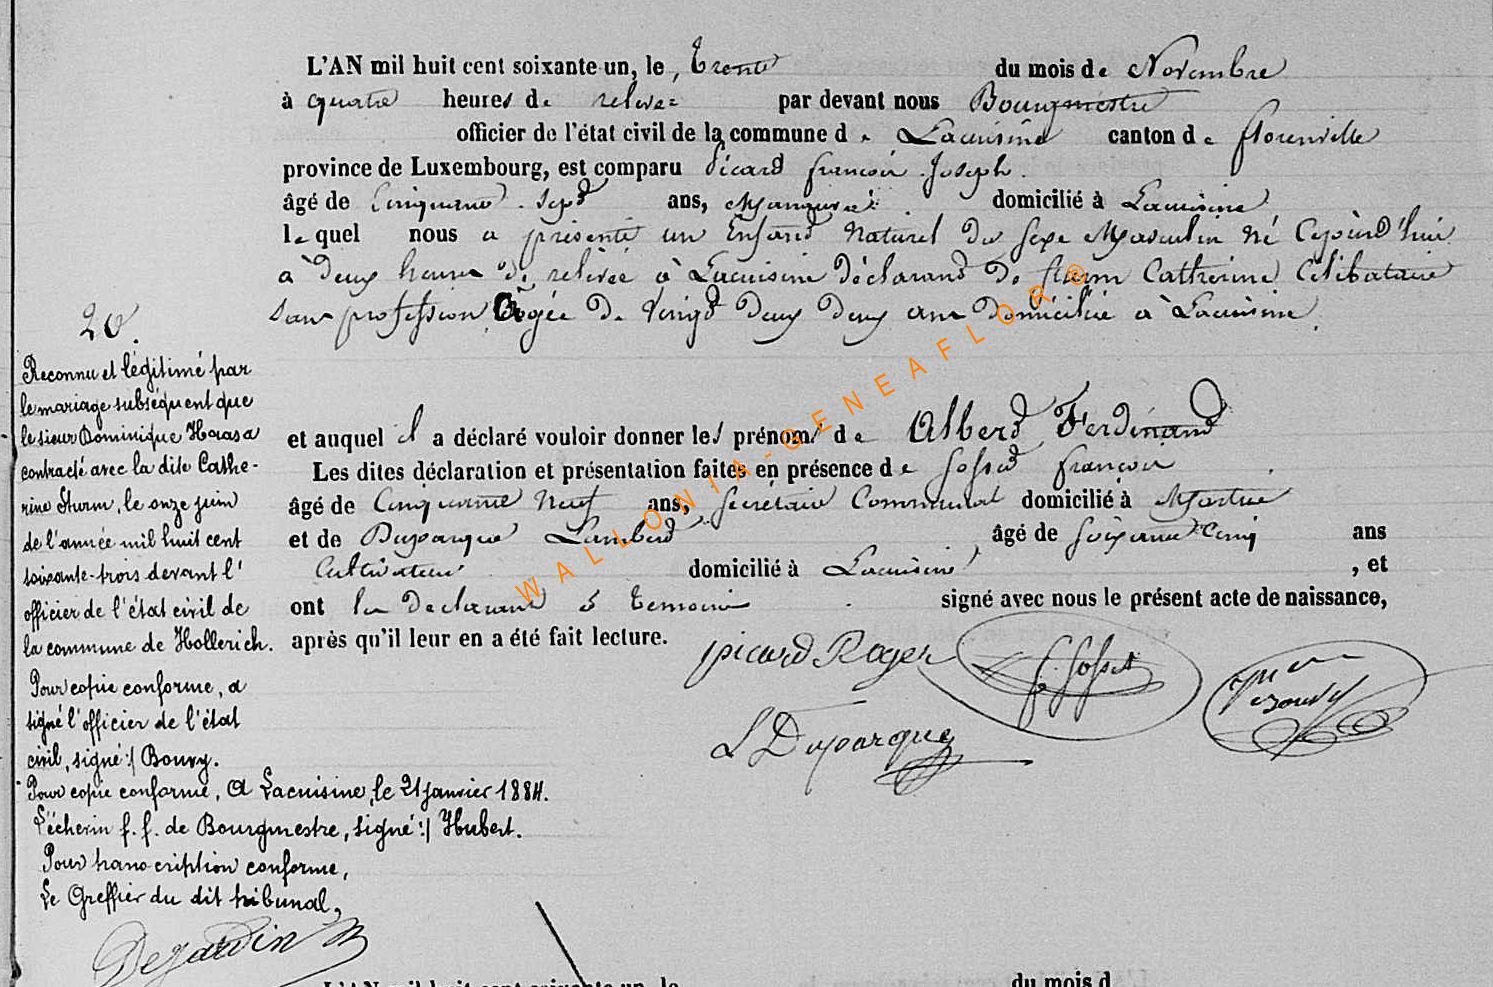 L'AN mil huit cent soixante-un, le Trente du mois de Novembre
à quatre heures de relevée par devant nous Bourgmestre
officier de l'état civil de la commune de Lacuisine canton de florenville
province de Luxembourg, est comparu Picard françois Joseph.
âgé de Cinquante Sept ans, domicilié à Lacuisine
lequel nous a présenté un Enfand Naturel du sexe Masculin né Cejourd'hui
à deux heures de relevée à Lacuisine déclarand de Sturm Catherine Célibataire
sans profession Agée de Vingd deux deux ans domiciliée à Lacuisine.
20.
Reconnu et légitimé par
le mariage subséquent que
le sieur Dominique Haasa
contracté avec la dite Cathe-
rine Sturm, le onze juin
de l'année mil huit cent
soixante-trois devant l'
officier de l'état civil de
la commune de Hollerich.
Pour copie conforme, a
signé l'officier de l'état
civil, signé :/ Bouvy.
Pour copie conforme, A Lacuisine, le 21 janvier 1884.
L'échevin f. f. de Bourgmestre, signé :/ Hubert.
Pour transcription conforme,
Le Greffier du dit tribunal,
Dejardin
et auquel il a déclaré vouloir donner les prénoms de Alberd Ferdinand
Les dites déclaration et présentation faites en présence de Gosset françois
âgé de Cinquante Neuf ans, Secrétaire Communal domicilié à
et de Duparque Lamberd âgé de Soixante Cinq ans
Cultivateur domicilié à Lacuisine, et
ont les Déclarant & Temoins signé avec nous le présent acte de naissance,
après qu'il leur en a été fait lecture.
picard Roger
f. Gosset
L Duparque
WALLONIA-GENEAFLOR®
L'AN mil huit cent soixante-un, le du mois d